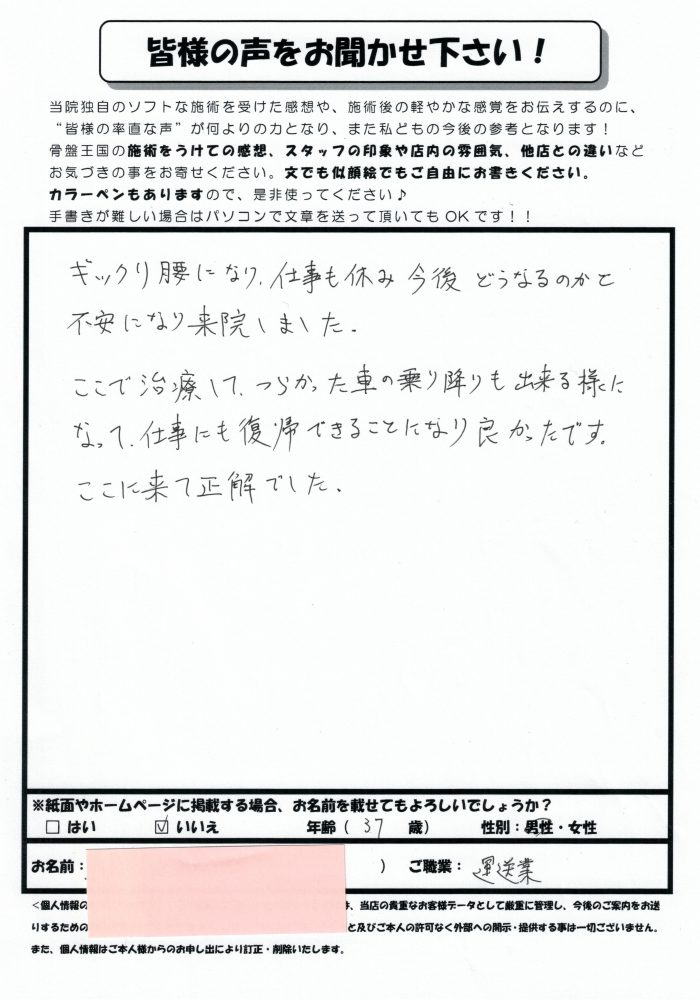 皆様の声をお聞かせ下さい！
当院独自のソフトな施術を受けた感想や、施術後の軽やかな感覚をお伝えするのに、
“皆様の率直な声”が何よりの力となり、また私どもの今後の参考となります！
骨盤王国の施術をうけての感想、スタッフの印象や店内の雰囲気、他店との違いなど
お気づきの事をお寄せください。文でも似顔絵でもご自由にお書きください。
カラーペンもありますので、是非使ってください♪
手書きが難しい場合はパソコンで文章を送って頂いてもOKです！！
ギックリ腰になり、仕事も休み今後どうなるのかと
不安になり来院しました。
ここで治療して、つらかった車の乗り降りも出来る様に
なって、仕事にも復帰できることになり良かったです。
ここに来て正解でした。
※紙面やホームページに掲載する場合、お名前を載せてもよろしいでしょうか？
□ はい ☑ いいえ 年齢（ 37 歳） 性別：男性・女性
お名前： ） ご職業： 運送業
＜個人情報の は、当店の貴重なお客様データとして厳重に管理し、今後のご案内をお送
りするための と及びご本人の許可なく外部への開示・提供する事は一切ございません。
また、個人情報はご本人様からのお申し出により訂正・削除いたします。